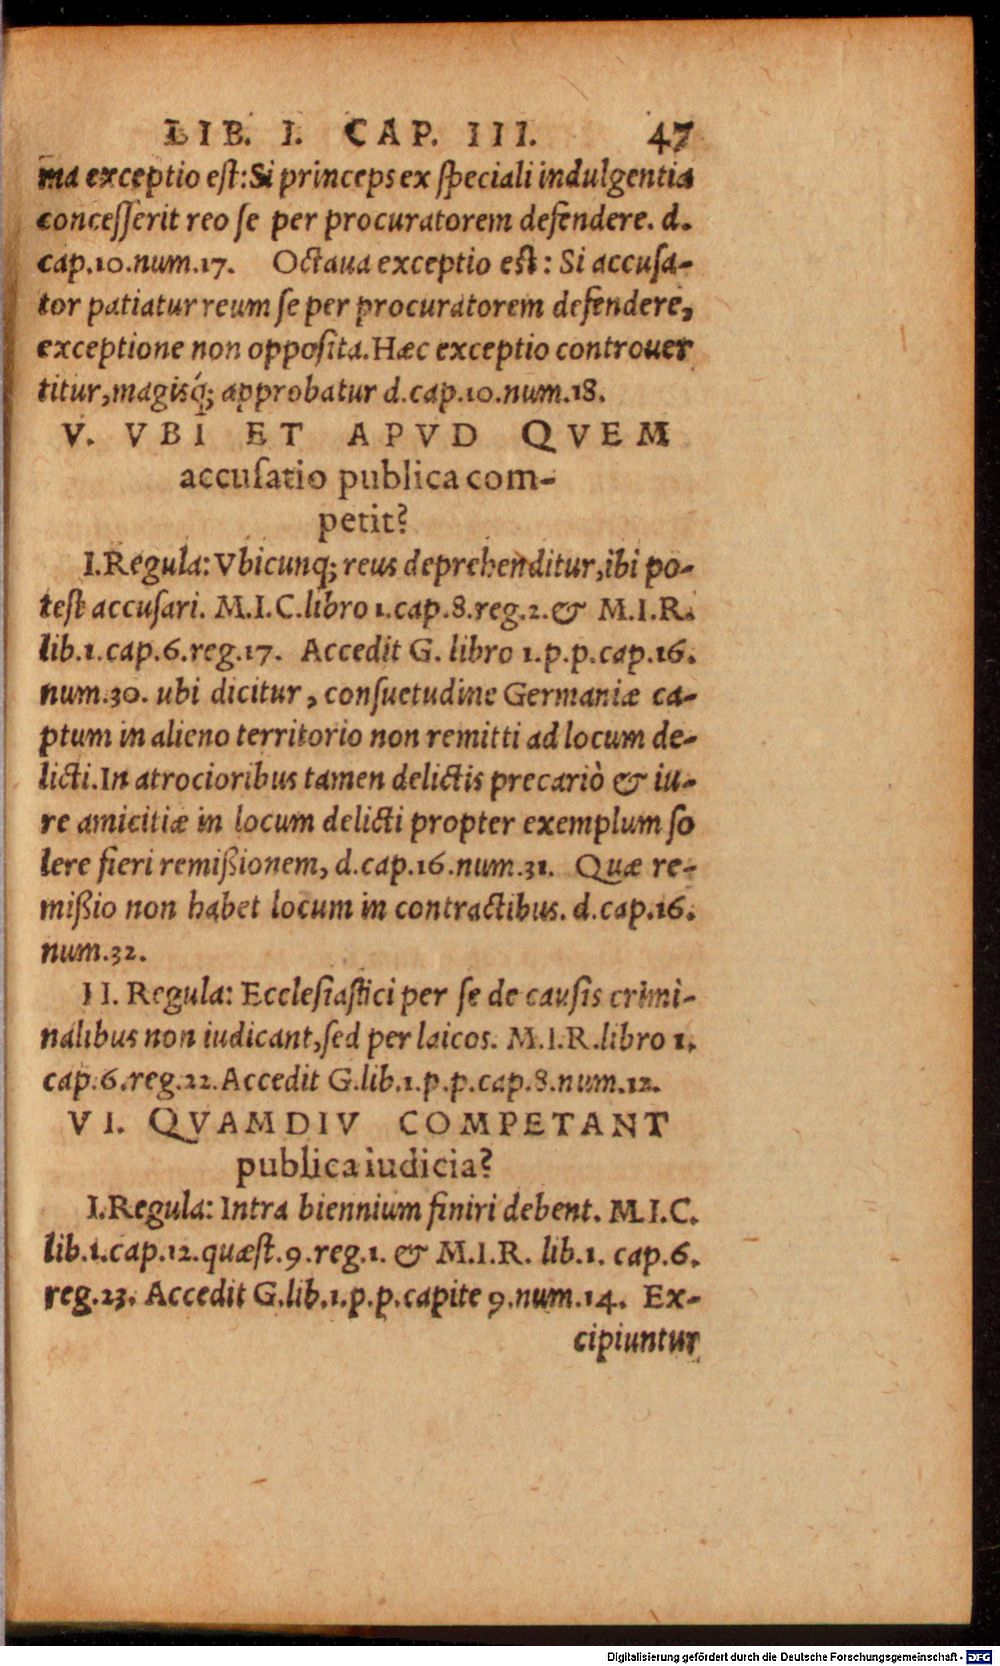 LIB. I. CAP. III. 47
ma exceptio est: Si princeps ex speciali indulgentia
concesserit reo se per procuratorem defendere. d.
cap.10.num.17. Octaua exceptio est: Si accusa-
tor patiatur reum se per procuratorem defendere,
exceptione non opposita. Hæc exceptio controuer
titur, magisq́; approbatur d.cap.10.num.18.
V. VBI ET APVD QVEM
accusatio publica com-
petit?
I. Regula: Vbicunq; reus deprehenditur, ibi po-
test accusari. M.I.C. libro 1. cap.8.reg.2. & M.I.R.
lib.1.cap.6.reg.17. Accedit G. libro 1.p.p.cap.16.
num.30. ubi dicitur, consuetudine Germaniæ ca-
ptum in alieno territorio non remitti ad locum de-
licti. In atrocioribus tamen delictis precariò & iu-
re amicitiæ in locum delicti propter exemplum so
lere fieri remißionem, d.cap.16.num.31. Quæ re-
mißio non habet locum in contractibus. d.cap.16.
num.32.
II. Regula: Ecclesiastici per se de causis crimi-
nalibus non iudicant, sed per laicos. M.I.R. libro 1.
cap.6.reg.22. Accedit G.lib.1.p.p.cap.8.num.12.
VI. QVAMDIV COMPETANT
publica iudicia?
I. Regula: Intra biennium finiri debent. M.I.C.
lib.1.cap.12.quæst.9.reg.1. & M.I.R. lib.1. cap.6.
reg.23. Accedit G.lib.1.p.p.capite 9.num.14. Ex-
cipiuntur
Digitalisierung gefördert durch die Deutsche Forschungsgemeinschaft - DFG